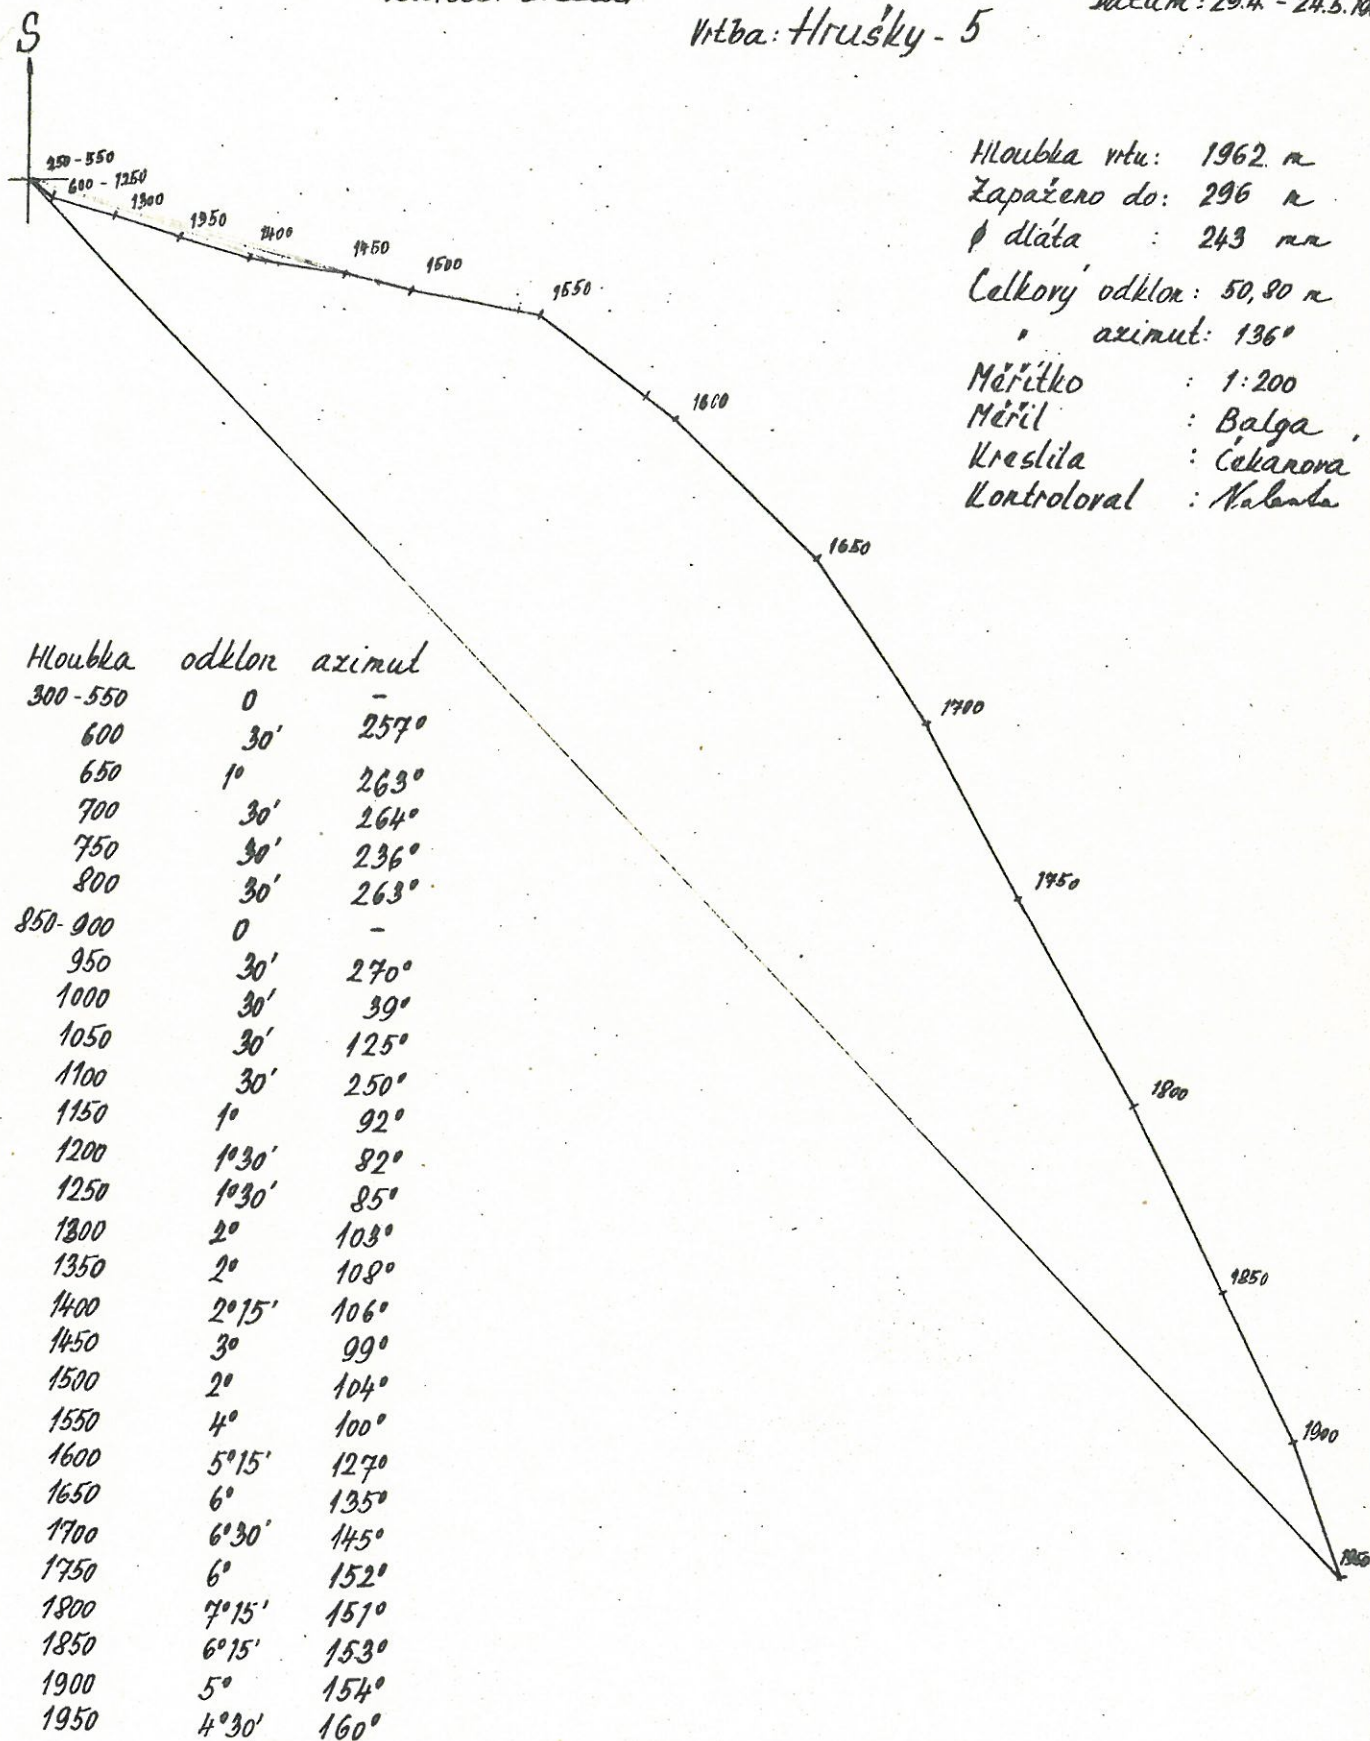 Vrtba: Hrušky - 5
S
Hloubka vrtu: 1962 m
Zapaženo do: 296 m
ϕ dláta : 243 mm
Celkový odklon: 50,80 m
" azimut: 136°
Měřítko : 1:200
Měřil : Balga
Kreslila : Čekanová
Kontroloval :
250-550
600-1250
1300
1350
1400
1450
1500
1550
1600
1650
1700
1750
1800
1850
1900
1950
Hloubka odklon azimut
300-550 0 -
600 30' 257°
650 1° 263°
700 30' 264°
750 30' 236°
800 30' 263°
850-900 0 -
950 30' 270°
1000 30' 39°
1050 30' 125°
1100 30' 250°
1150 1° 92°
1200 1°30' 82°
1250 1°30' 85°
1300 2° 103°
1350 2° 108°
1400 2°15' 106°
1450 3° 99°
1500 2° 104°
1550 4° 100°
1600 5°15' 127°
1650 6° 135°
1700 6°30' 145°
1750 6° 152°
1800 7°15' 151°
1850 6°15' 153°
1900 5° 154°
1950 4°30' 160°